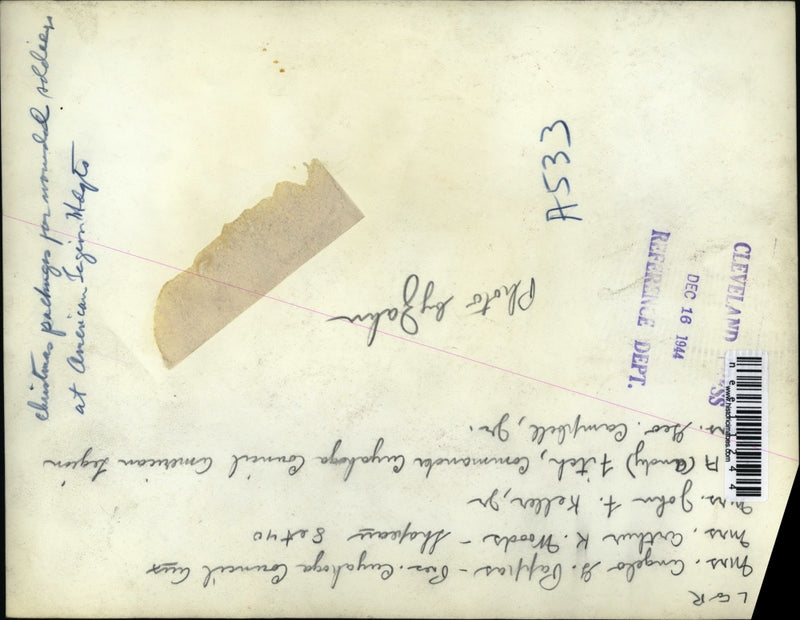 Christmas packages for wounded soldiers
at American Legion Hdqts
A533
Photo by Jahn
CLEVELAND
DEC 16 1944
REFERENCE DEPT.
L to R
Mrs. Angelo G. Pappas - Pres. Cuyahoga Council Aux
Mrs. Arthur K. Woods - 8 et 40
Mrs. John F. Keller, Jr
A (Andy) Fitch, Commander Cuyahoga Council American Legion
Mrs. Geo. Campbell, Jr.